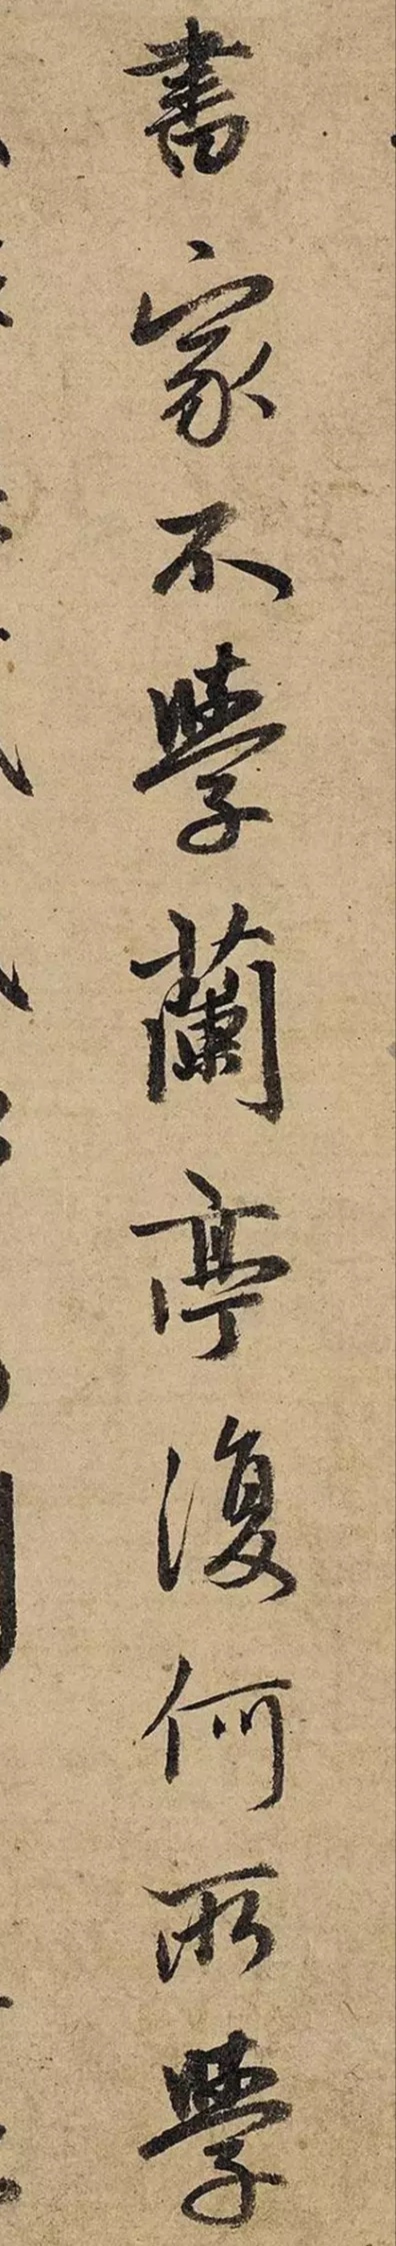 書家不學蘭亭復何所學